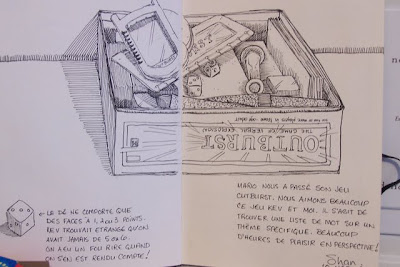 OUTBURST
THE GAME OF VERBAL EXPLOSIONS
OUTBURST
← LE DÉ NE COMPORTE QUE
DES FACES À 1, 2 OU 3 POINTS.
KEV TROUVAIT ÉTRANGE QU'ON
AVAIT JAMAIS DE 5 OU 6.
ON A EU UN FOU RIRE QUAND
ON S'EN EST RENDU COMPTE!
MARIO NOUS A PASSÉ SON JEU
OUTBURST. NOUS AIMONS BEAUCOUP
CE JEU KEV ET MOI. IL S'AGIT DE
TROUVER UNE LISTE DE MOT SUR UN
THÈME SPÉCIFIQUE. BEAUCOUP
D'HEURES DE PLAISIR EN PERSPECTIVE!
Shan.